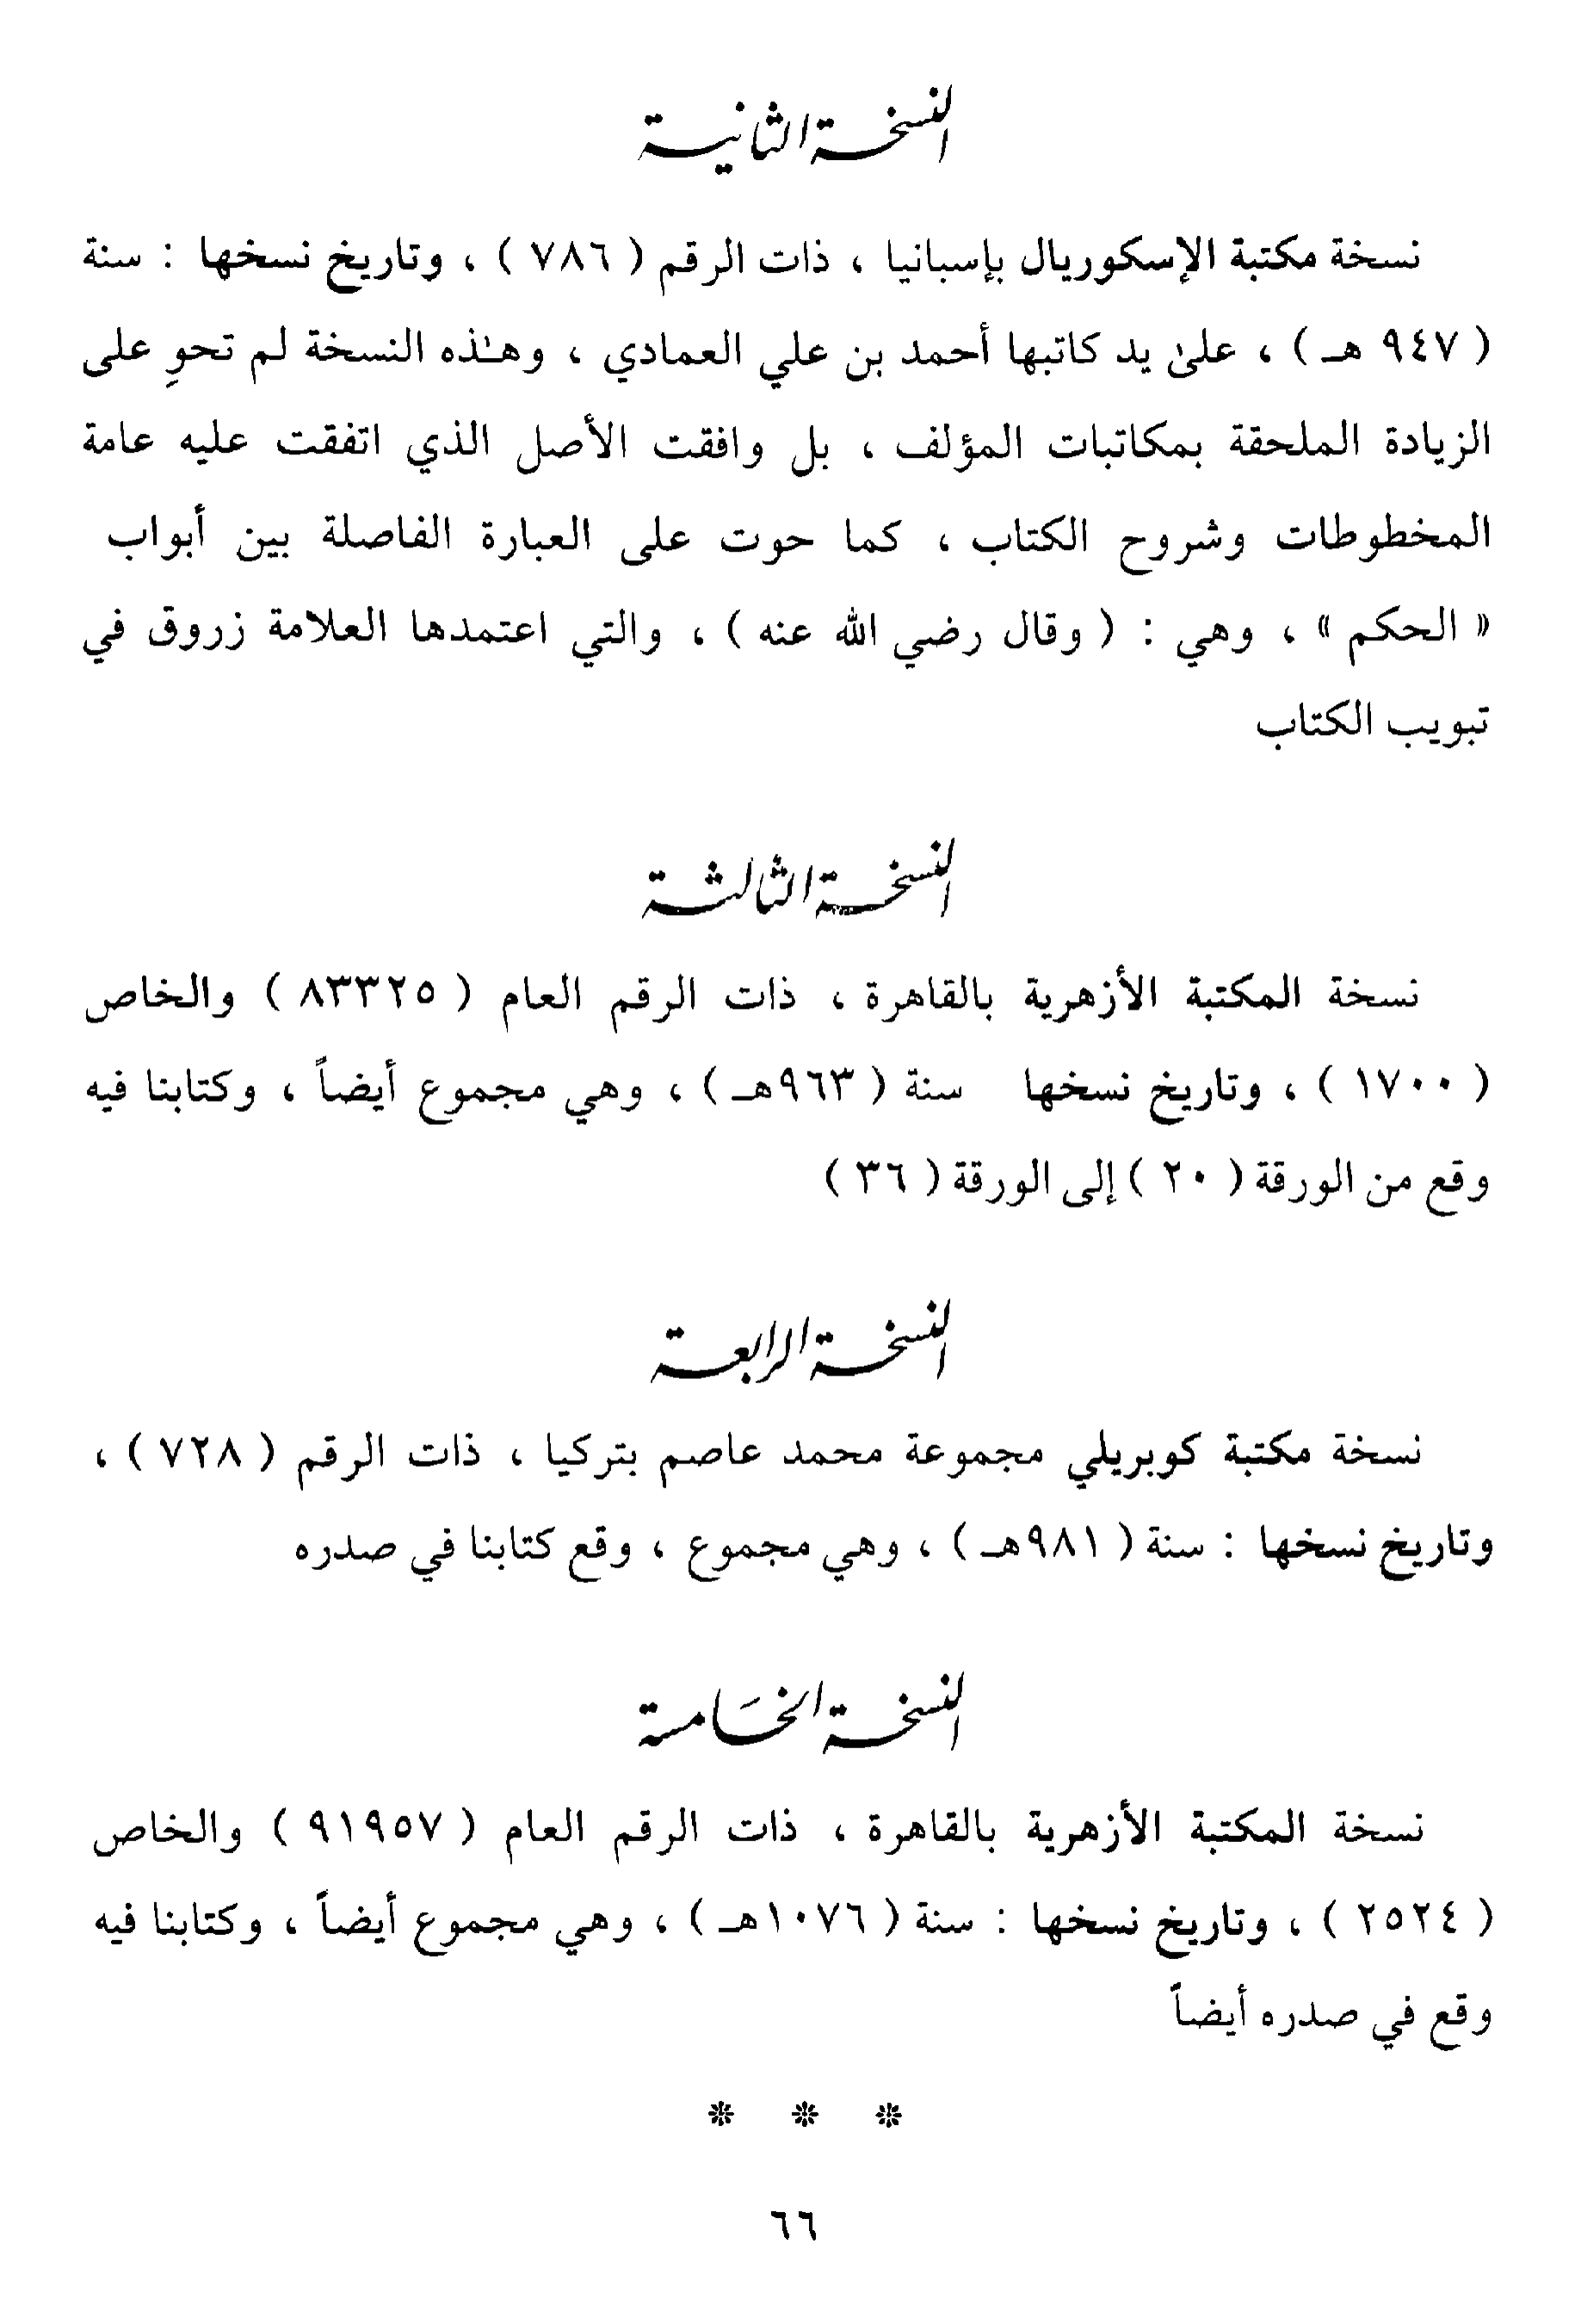 النسخة الثانية
نسخة مكتبة الإسكوريال بإسبانيا ، ذات الرقم ( ٧٨٦ ) ، وتاريخ نسخها : سنة
( ٩٤٧ هـ ) ، علىٰ يد كاتبها أحمد بن علي العمادي ، وهـٰذه النسخة لم تحوِ على
الزيادة الملحقة بمكاتبات المؤلف ، بل وافقت الأصل الذي اتفقت عليه عامة
المخطوطات وشروح الكتاب ، كما حوت على العبارة الفاصلة بين أبواب
« الحكم » ، وهي : ( وقال رضي الله عنه ) ، والتي اعتمدها العلامة زروق في
تبويب الكتاب
النسخة الثالثة
نسخة المكتبة الأزهرية بالقاهرة ، ذات الرقم العام ( ٨٣٣٢٥ ) والخاص
( ١٧٠٠ ) ، وتاريخ نسخها سنة ( ٩٦٣هـ ) ، وهي مجموع أيضاً ، وكتابنا فيه
وقع من الورقة ( ٢٠ ) إلى الورقة ( ٣٦ )
النسخة الرابعة
نسخة مكتبة كوبريلي مجموعة محمد عاصم بتركيا ، ذات الرقم ( ٧٢٨ ) ،
وتاريخ نسخها : سنة ( ٩٨١هـ ) ، وهي مجموع ، وقع كتابنا في صدره
النسخة الخَامسة
نسخة المكتبة الأزهرية بالقاهرة ، ذات الرقم العام ( ٩١٩٥٧ ) والخاص
( ٢٥٢٤ ) ، وتاريخ نسخها : سنة ( ١٠٧٦هـ ) ، وهي مجموع أيضاً ، وكتابنا فيه
وقع في صدره أيضاً
* * *
٦٦